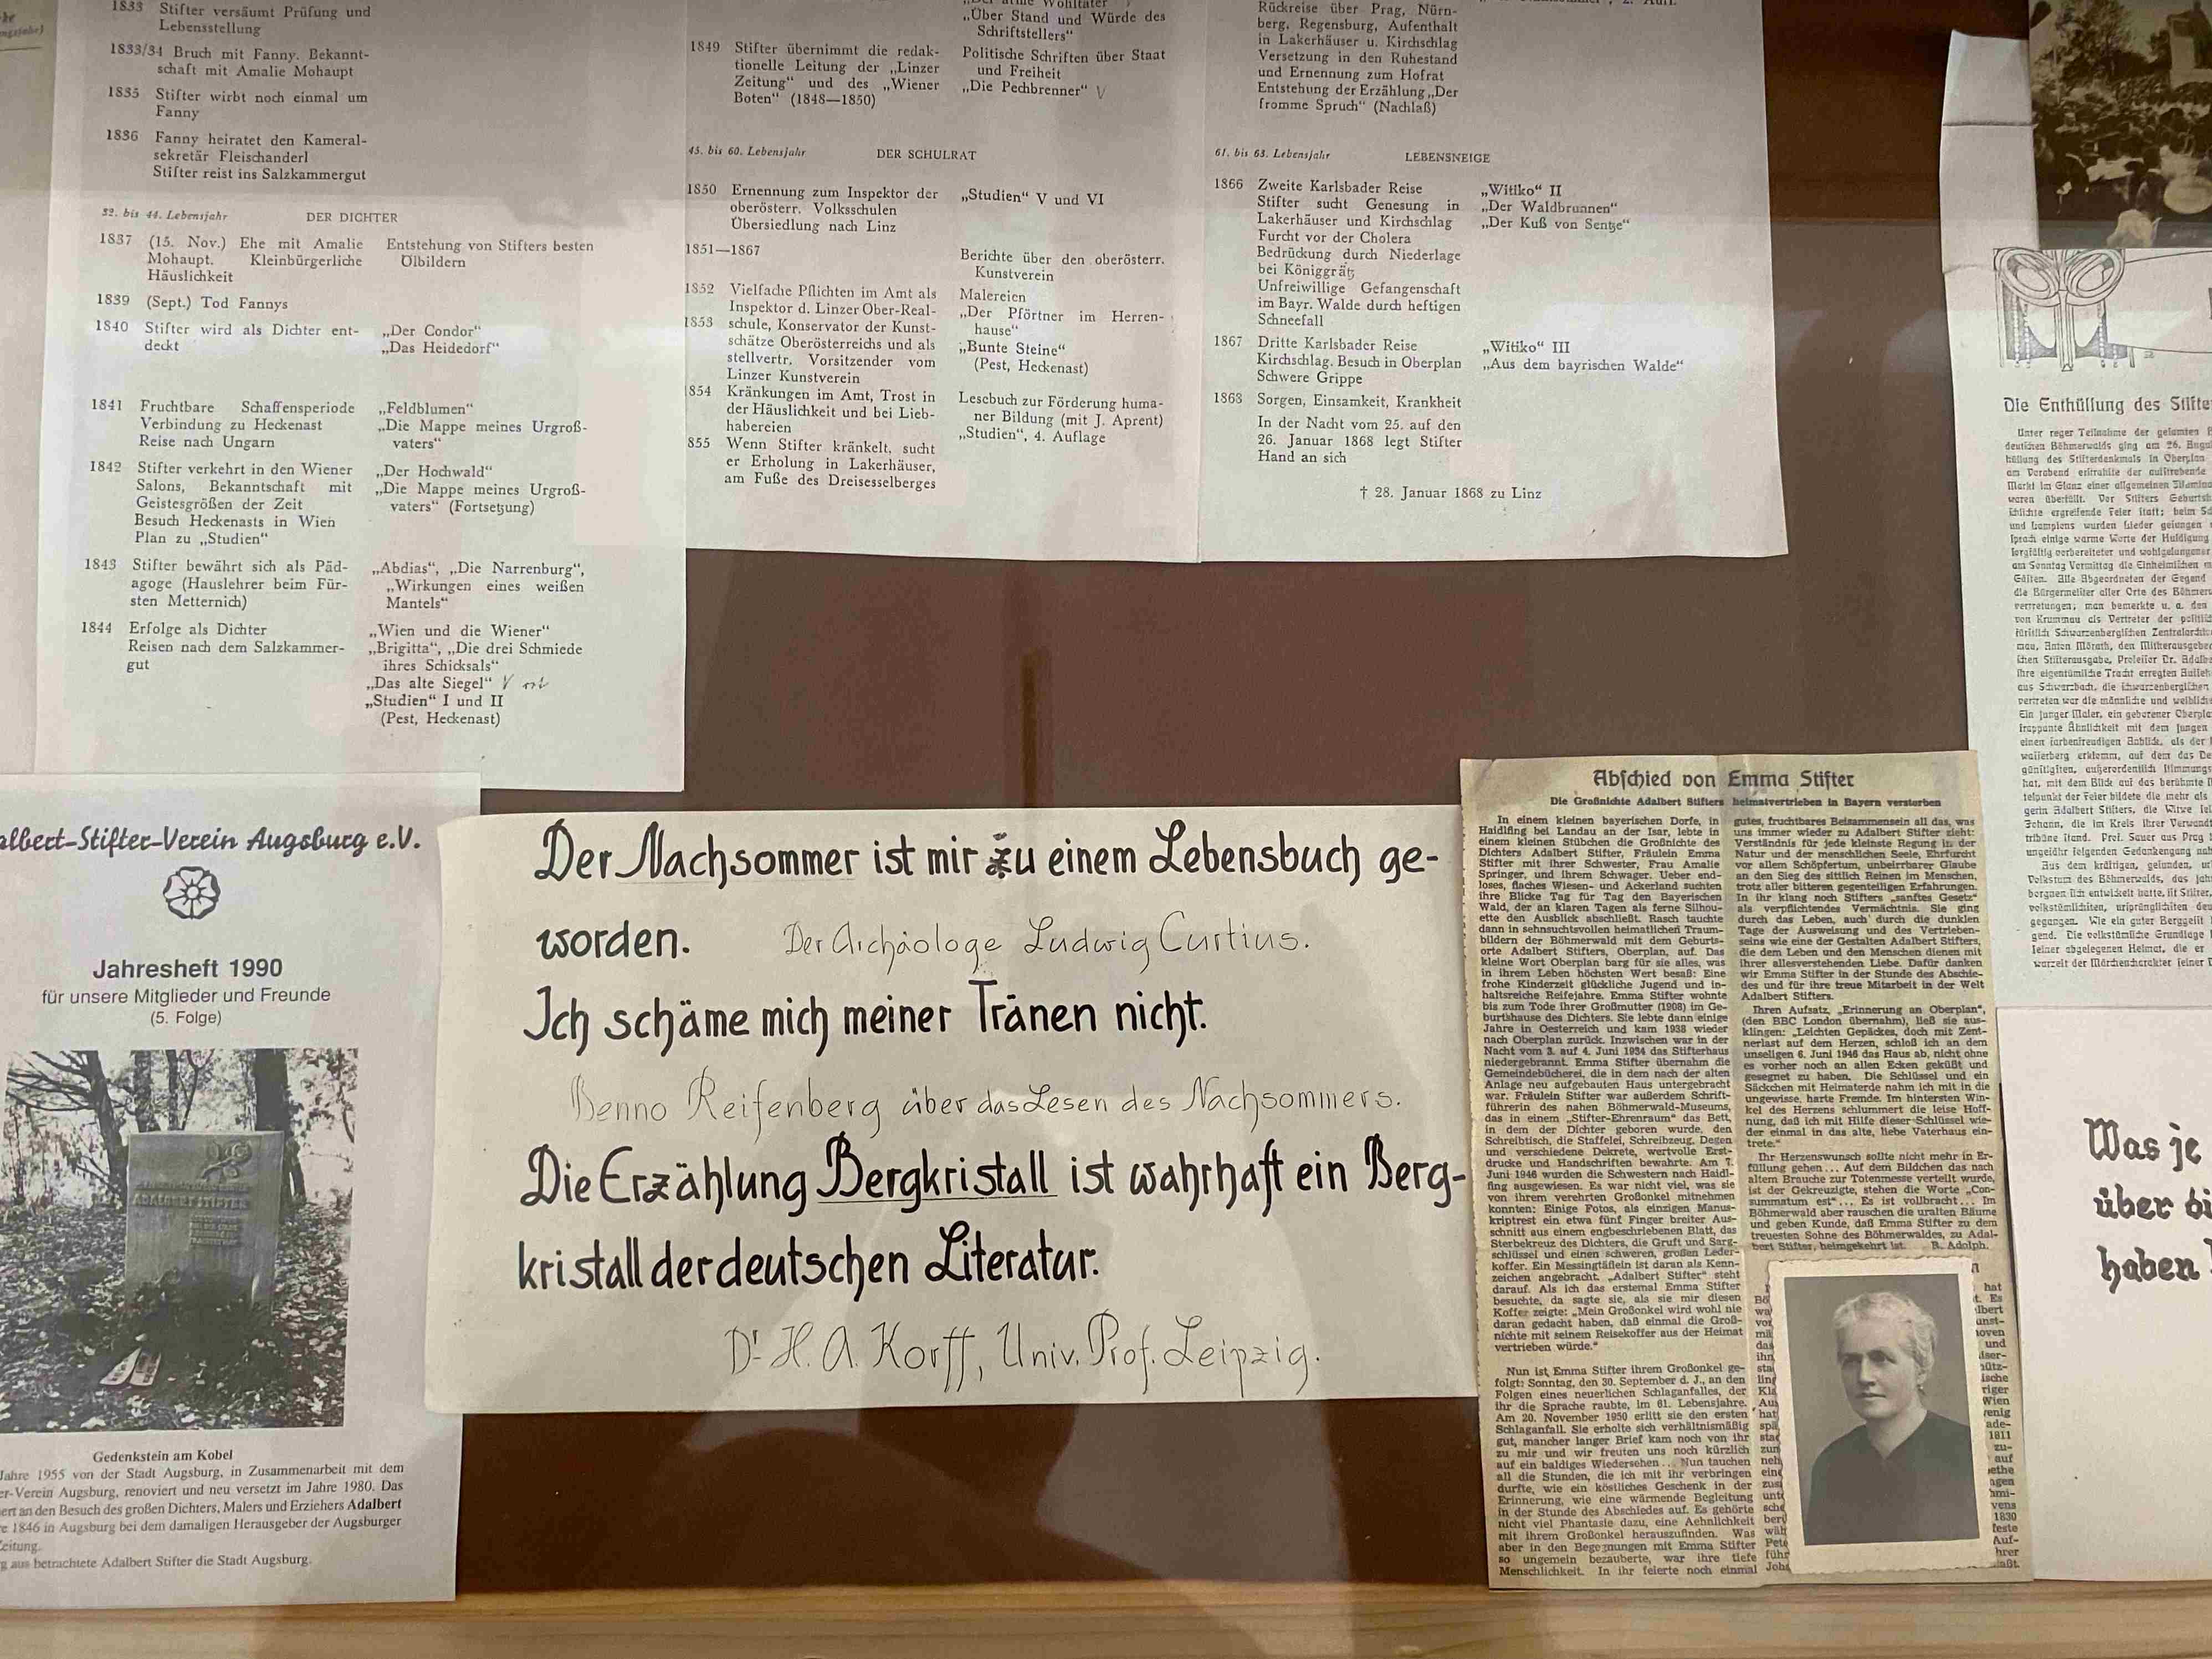 1833 Stifter versäumt Prüfung und
Lebensstellung
1833/34 Bruch mit Fanny. Bekannt-
schaft mit Amalie Mohaupt
1835 Stifter wirbt noch einmal um
Fanny
1836 Fanny heiratet den Kameral-
sekretär Fleischanderl
Stifter reist ins Salzkammergut
32. bis 44. Lebensjahr DER DICHTER
1837 (15. Nov.) Ehe mit Amalie Entstehung von Stifters besten
Mohaupt. Kleinbürgerliche Ölbildern
Häuslichkeit
1839 (Sept.) Tod Fannys
1840 Stifter wird als Dichter ent- „Der Condor“
deckt „Das Heidedorf“
1841 Fruchtbare Schaffensperiode „Feldblumen“
Verbindung zu Heckenast „Die Mappe meines Urgroß-
Reise nach Ungarn vaters“
1842 Stifter verkehrt in den Wiener „Der Hochwald“
Salons, Bekanntschaft mit „Die Mappe meines Urgroß-
Geistesgrößen der Zeit vaters“ (Fortsetzung)
Besuch Heckenasts in Wien
Plan zu „Studien“
1843 Stifter bewährt sich als Päd- „Abdias“, „Die Narrenburg“,
agoge (Hauslehrer beim Für- „Wirkungen eines weißen
sten Metternich) Mantels“
1844 Erfolge als Dichter „Wien und die Wiener“
Reisen nach dem Salzkammer- „Brigitta“, „Die drei Schmiede
gut ihres Schicksals“
„Das alte Siegel“
„Studien“ I und II
(Pest, Heckenast)
„Über Stand und Würde des
Schriftstellers“
1849 Stifter übernimmt die redak- Politische Schriften über Staat
tionelle Leitung der „Linzer und Freiheit
Zeitung“ und des „Wiener „Die Pechbrenner“
Boten“ (1848—1850)
45. bis 60. Lebensjahr DER SCHULRAT
1850 Ernennung zum Inspektor der „Studien“ V und VI
oberösterr. Volksschulen
Übersiedlung nach Linz
1851—1867 Berichte über den oberösterr.
Kunstverein
1852 Vielfache Pflichten im Amt als Malereien
Inspektor d. Linzer Ober-Real- „Der Pförtner im Herren-
1853 schule, Konservator der Kunst- hause“
schätze Oberösterreichs und als „Bunte Steine“
stellvertr. Vorsitzender vom (Pest, Heckenast)
Linzer Kunstverein
854 Kränkungen im Amt, Trost in Lesebuch zur Förderung huma-
der Häuslichkeit und bei Lieb- ner Bildung (mit J. Aprent)
habereien „Studien“, 4. Auflage
855 Wenn Stifter kränkelt, sucht
er Erholung in Lakerhäuser,
am Fuße des Dreisesselberges
Rückreise über Prag, Nürn-
berg, Regensburg, Aufenthalt
in Lakerhäuser u. Kirchschlag
Versetzung in den Ruhestand
und Ernennung zum Hofrat
Entstehung der Erzählung „Der
fromme Spruch“ (Nachlaß)
61. bis 63. Lebensjahr LEBENSNEIGE
1866 Zweite Karlsbader Reise „Witiko“ II
Stifter sucht Genesung in „Der Waldbrunnen“
Lakerhäuser und Kirchschlag „Der Kuß von Sentze“
Furcht vor der Cholera
Bedrückung durch Niederlage
bei Königgrätz
Unfreiwillige Gefangenschaft
im Bayr. Walde durch heftigen
Schneefall
1867 Dritte Karlsbader Reise „Witiko“ III
Kirchschlag. Besuch in Oberplan „Aus dem bayrischen Walde“
Schwere Grippe
1868 Sorgen, Einsamkeit, Krankheit
In der Nacht vom 25. auf den
26. Januar 1868 legt Stifter
Hand an sich
† 28. Januar 1868 zu Linz
Die Enthüllung des Stifte
Unter reger Teilnahme der gesamten
deutschen Böhmerwalds ging am 26.
hüllung des Stifterdenkmals in Oberplan
am Vorabend erstrahlte der aufstrebende
Markt im Glanz einer allgemeinen
waren überfüllt. Vor Stifters
schlichte ergreifende Feier statt; beim
und Lampions wurden Lieder gesungen
sprach einige warme Worte der Huldigung
sorgfältig vorbereiteter und wohlgelungener
am Sonntag Vormittag die Einheimischen
Gästen. Alle Abgeordneten der Gegend
die Bürgermeister aller Orte des
vertretungen; man bemerkte u. a. den
von Krummau als Vertreter der
fürstlich Schwarzenbergischen
mau, Anton Mörath, den Mitherausgeber
chen Stifterausgabe, Professor Dr.
Ihre eigentümliche Tracht erregten
aus Schwarzbach, die schwarzenbergischen
vertreten war die männliche und
Ein junger Maler, ein geborener
frappante Ähnlichkeit mit dem jungen
einen farbenfreudigen Anblick, als der
auf dem das
günstigsten, außerordentlich
hat, mit dem Blick auf das berühmte
telpunkt der Feier bildete die mehr als
gerin Adalbert Stifters, die Witwe
die im Kreis ihrer
tribüne stand. Prof. Sauer aus Prag
ungefähr folgenden Gedankengang
Aus dem kräftigen, gesunden,
Volkstum des Böhmerwalds, das
borgnen sich entwickelt hatte, ist Stifter,
volkstümlichsten, ursprünglichsten
gegangen. Wie ein guter Berggeist
gend. Die volkstümliche Grundlage
seiner abgelegenen Heimat, die er
wurzelt der Märchencharakter seiner
albert-Stifter-Verein Augsburg e.V.
Jahresheft 1990
für unsere Mitglieder und Freunde
(5. Folge)
ADALBERT STIFTER
Gedenkstein am Kobel
Jahre 1955 von der Stadt Augsburg, in Zusammenarbeit mit dem
er-Verein Augsburg, renoviert und neu versetzt im Jahre 1980. Das
ert an den Besuch des großen Dichters, Malers und Erziehers Adalbert
e 1846 in Augsburg bei dem damaligen Herausgeber der Augsburger
eitung.
g aus betrachtete Adalbert Stifter die Stadt Augsburg.
Der Nachsommer ist mir zu einem Lebensbuch ge-
worden. Der Archäologe Ludwig Curtius.
Ich schäme mich meiner Tränen nicht.
Benno Reifenberg über das Lesen des Nachsommers.
Die Erzählung Bergkristall ist wahrhaft ein Berg-
kristall der deutschen Literatur.
Dr. H. A. Korff, Univ. Prof. Leipzig.
Abschied von Emma Stifter
Die Großnichte Adalbert Stifters heimatvertrieben in Bayern verstorben
In einem kleinen bayerischen Dorfe, in
Haidlfing bei Landau an der Isar, lebte in
einem kleinen Stübchen die Großnichte des
Dichters Adalbert Stifter, Fräulein Emma
Stifter mit ihrer Schwester, Frau Amalie
Springer, und ihrem Schwager. Ueber end-
loses, flaches Wiesen- und Ackerland suchten
ihre Blicke Tag für Tag den Bayerischen
Wald, der an klaren Tagen als ferne Silhou-
ette den Ausblick abschließt. Rasch tauchte
dann in sehnsuchtsvollen heimatlichen Traum-
bildern der Böhmerwald mit dem Geburts-
orte Adalbert Stifters, Oberplan, auf. Das
kleine Wort Oberplan barg für sie alles, was
in ihrem Leben höchsten Wert besaß: Eine
frohe Kinderzeit glückliche Jugend und in-
haltsreiche Reifejahre. Emma Stifter wohnte
bis zum Tode ihrer Großmutter (1908) im Ge-
burtshause des Dichters. Sie lebte dann einige
Jahre in Oesterreich und kam 1938 wieder
nach Oberplan zurück. Inzwischen war in der
Nacht vom 3. auf 4. Juni 1934 das Stifterhaus
niedergebrannt. Emma Stifter übernahm die
Gemeindebücherei, die in dem nach der alten
Anlage neu aufgebauten Haus untergebracht
war. Fräulein Stifter war außerdem Schrift-
führerin des nahen Böhmerwald-Museums,
das in einem „Stifter-Ehrenraum“ das Bett,
in dem der Dichter geboren wurde, den
Schreibtisch, die Staffelei, Schreibzeug, Degen
und verschiedene Dekrete, wertvolle Erst-
drucke und Handschriften bewahrte. Am 7.
Juni 1946 wurden die Schwestern nach Haidl-
fing ausgewiesen. Es war nicht viel, was sie
von ihrem verehrten Großonkel mitnehmen
konnten: Einige Fotos, als einzigen Manus-
kriptrest ein etwa fünf Finger breiter Aus-
schnitt aus einem engbeschriebenen Blatt, das
Sterbekreuz des Dichters, die Gruft und Sarg-
schlüssel und einen schweren, großen Leder-
koffer. Ein Messingtäflein ist daran als Kenn-
zeichen angebracht. „Adalbert Stifter“ steht
darauf. Als ich das erstemal Emma Stifter
besuchte, da sagte sie, als sie mir diesen
Koffer zeigte: „Mein Großonkel wird wohl nie
daran gedacht haben, daß einmal die Groß-
nichte mit seinem Reisekoffer aus der Heimat
vertrieben würde.“
Nun ist Emma Stifter ihrem Großonkel ge-
folgt: Sonntag, den 30. September d. J., an den
Folgen eines neuerlichen Schlaganfalles, der
ihr die Sprache raubte, im 61. Lebensjahre.
Am 20. November 1950 erlitt sie den ersten
Schlaganfall. Sie erholte sich verhältnismäßig
gut, mancher langer Brief kam noch von ihr
zu mir und wir freuten uns noch kürzlich
auf ein baldiges Wiedersehen... Nun tauchen
all die Stunden, die ich mit ihr verbringen
durfte, wie ein köstliches Geschenk in der
Erinnerung, wie eine wärmende Begleitung
in der Stunde des Abschiedes auf. Es gehörte
nicht viel Phantasie dazu, eine Aehnlichkeit
mit ihrem Großonkel herauszufinden. Was
aber in den Begegnungen mit Emma Stifter
so ungemein bezauberte, war ihre tiefe
Menschlichkeit. In ihr feierte noch einmal
gutes, fruchtbares Beisammensein all das, was
uns immer wieder zu Adalbert Stifter zieht:
Verständnis für jede kleinste Regung in der
Natur und der menschlichen Seele, Ehrfurcht
vor allem Schöpfertum, unbeirrbarer Glaube
an den Sieg des sittlich Reinen im Menschen,
trotz aller bitteren gegenteiligen Erfahrungen.
In ihr klang noch Stifters „sanftes Gesetz“
als verpflichtendes Vermächtnis. Sie ging
durch das Leben, auch durch die dunklen
Tage der Ausweisung und des Vertrieben-
seins wie eine der Gestalten Adalbert Stifters,
die dem Leben und den Menschen dienen mit
ihrer allesverstehenden Liebe. Dafür danken
wir Emma Stifter in der Stunde des Abschie-
des und für ihre treue Mitarbeit in der Welt
Adalbert Stifters.
Ihren Aufsatz, „Erinnerung an Oberplan“,
(den BBC London übernahm), ließ sie aus-
klingen: „Leichten Gepäckes, doch mit Zent-
nerlast auf dem Herzen, schloß ich an dem
unseligen 6. Juni 1946 das Haus ab, nicht ohne
es vorher noch an allen Ecken geküßt und
gesegnet zu haben. Die Schlüssel und ein
Säckchen mit Heimaterde nahm ich mit in die
ungewisse, harte Fremde. Im hintersten Win-
kel des Herzens schlummert die leise Hoff-
nung, daß ich mit Hilfe dieser Schlüssel wie-
der einmal in das alte, liebe Vaterhaus ein-
trete.“
Ihr Herzenswunsch sollte nicht mehr in Er-
füllung gehen... Auf dem Bildchen das nach
altem Brauche zur Totenmesse verteilt wurde,
ist der Gekreuzigte, stehen die Worte „Con-
summatum est“... Es ist vollbracht... Im
Böhmerwald aber rauschen die uralten Bäume
und geben Kunde, daß Emma Stifter zu dem
treuesten Sohne des Böhmerwaldes, zu Adal-
bert Stifter, heimgekehrt ist. R. Adolph.
Was je
über di
haben